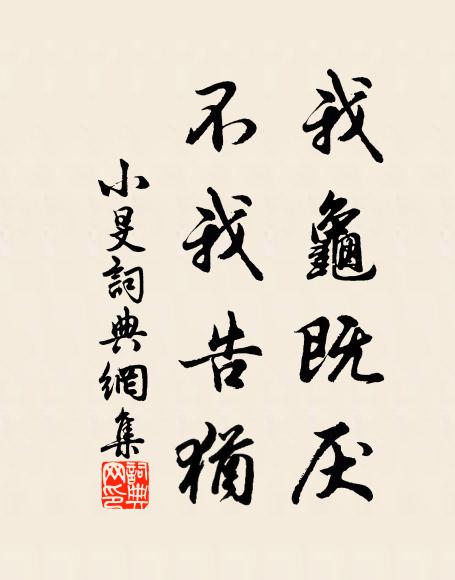 我龜既厌
不我告猶
小旻詞典網集
詞典網印